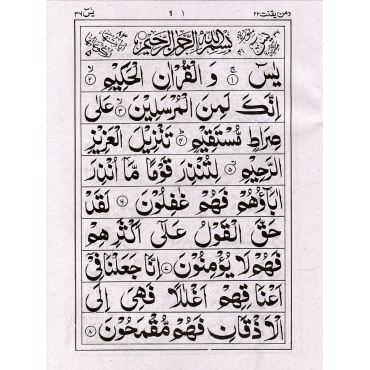 ومن يقنت ٢٢ ١ 1 يٰسٓ ٣٦
بِسْمِ اللّٰهِ الرَّحْمٰنِ الرَّحِيْمِ
يٰسٓ ۝١ وَ الْقُرْاٰنِ الْحَكِيْمِ ۝٢
اِنَّكَ لَمِنَ الْمُرْسَلِيْنَ ۝٣ عَلٰى
صِرَاطٍ مُّسْتَقِيْمٍ ۝٤ تَنْزِيْلَ الْعَزِيْزِ
الرَّحِيْمِ ۝٥ لِتُنْذِرَ قَوْمًا مَّاۤ اُنْذِرَ
اٰبَآؤُهُمْ فَهُمْ غٰفِلُوْنَ ۝٦ لَقَدْ
حَقَّ الْقَوْلُ عَلٰۤى اَكْثَرِهِمْ
فَهُمْ لَا يُؤْمِنُوْنَ ۝٧ اِنَّا جَعَلْنَا فِيْۤ
اَعْنَاقِهِمْ اَغْلٰلًا فَهِيَ اِلَى
الْاَذْقَانِ فَهُمْ مُّقْمَحُوْنَ ۝٨